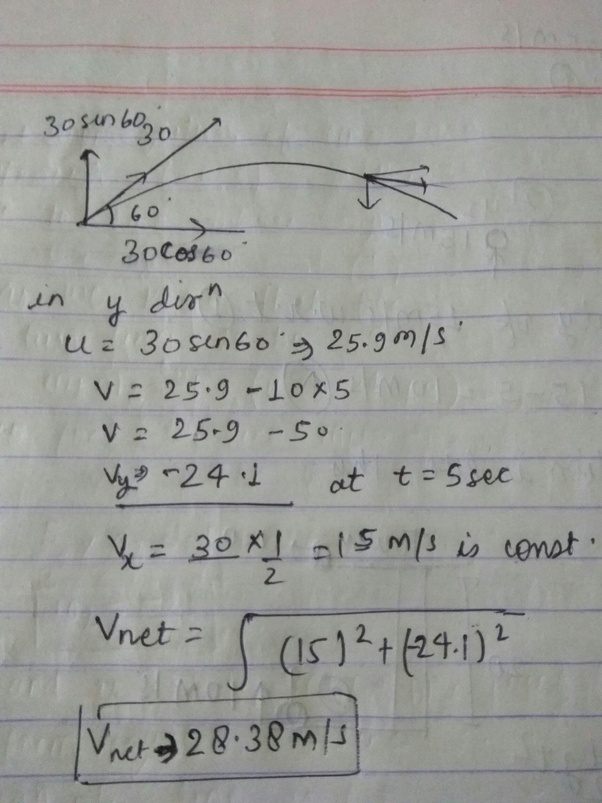 30sin60
30
60°
30cos60°
in y dirⁿ
u = 30sin60° ⇒ 25.9m/s
V = 25.9 - 10 × 5
V = 25.9 - 50
Vy ⇒ -24.1 at t = 5sec
Vx = 30 × 1/2 = 15 m/s is const.
Vnet = √(15)² + (-24.1)²
Vnet ⇒ 28.38 m/s